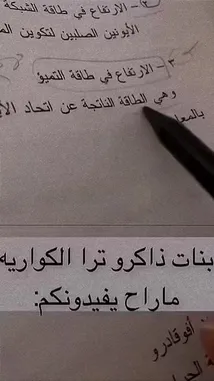 ٢- الارتفاع في طاقة الشبكة
الأيونين الصلبين لتكوين
٣- الارتفاع في طاقة التميؤ
وهي الطاقة الناتجة عن اتحاد
بنات ذاكرو ترا الكواريه
ماراح يفيدونكم:
أفوقادرو